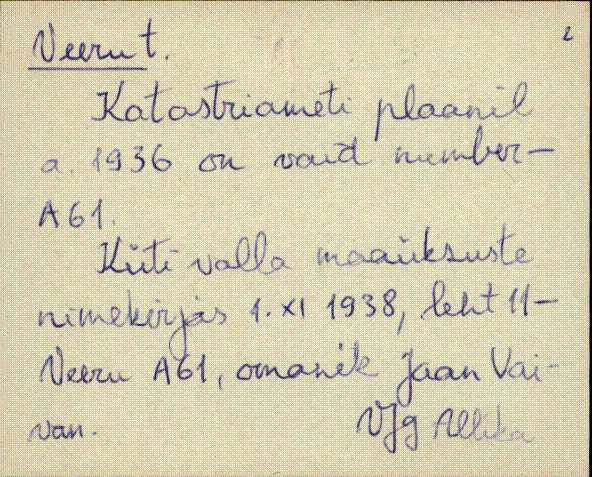 Veeru t. 2
Katastriameti plaanil
a. 1936 on vaid number-
A61.
Küti valla maaüksuste
nimekirjas 1. XI 1938, leht 11-
Veeru A61, omanik Jaan Vai-
van. VJg Allika